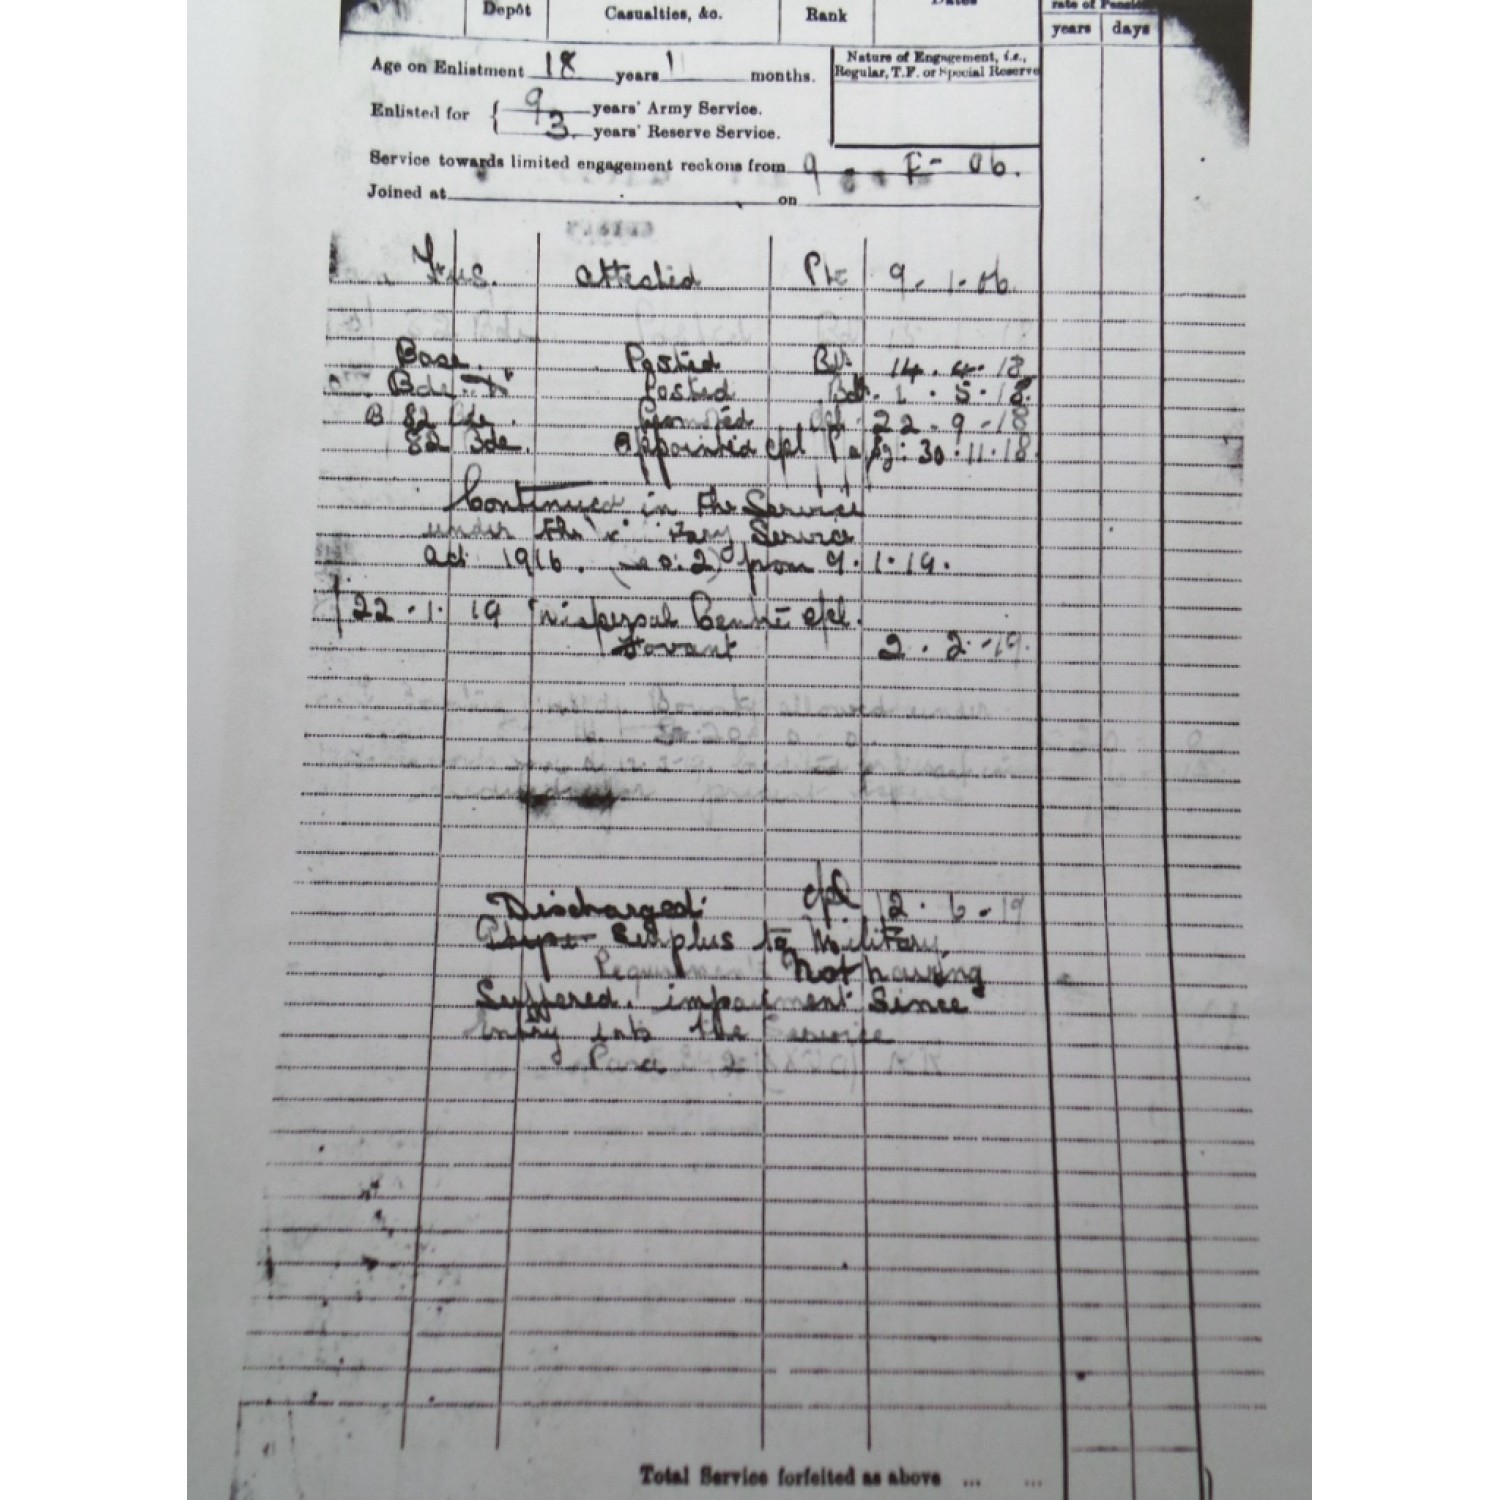 Depôt Casualties, &c. Rank Dates rate of Pension
years days
Age on Enlistment 18 years 1 months.
Nature of Engagement, i.e., Regular, T.F. or Special Reserve
Enlisted for { 9 years' Army Service.
3 years' Reserve Service.
Service towards limited engagement reckons from 9 06.
Joined at on
attested Pte 9. 1. 06
Base. Posted Bdr 14. 4. 18
Bde Posted Bdr. 1. 5. 18.
B 82 Bde. Promoted Cpl. 22. 9. 18
82 Bde. Appointed Cpl 30. 11. 18.
Continued in the Service
under the Service
Act 1916. (no: 2) from 9. 1. 19.
22. 1. 19 Dispersal Centre Cpl.
Fovant 2. 2. 19.
Discharged. Cpl 2. 6. 19
Surplus to Military
Requirements Not having
Suffered impairment Since
Entry into the Service
Para 2
Total Service forfeited as above ... ...